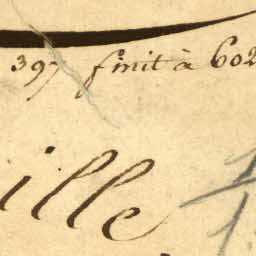 397 finit à 602
ille